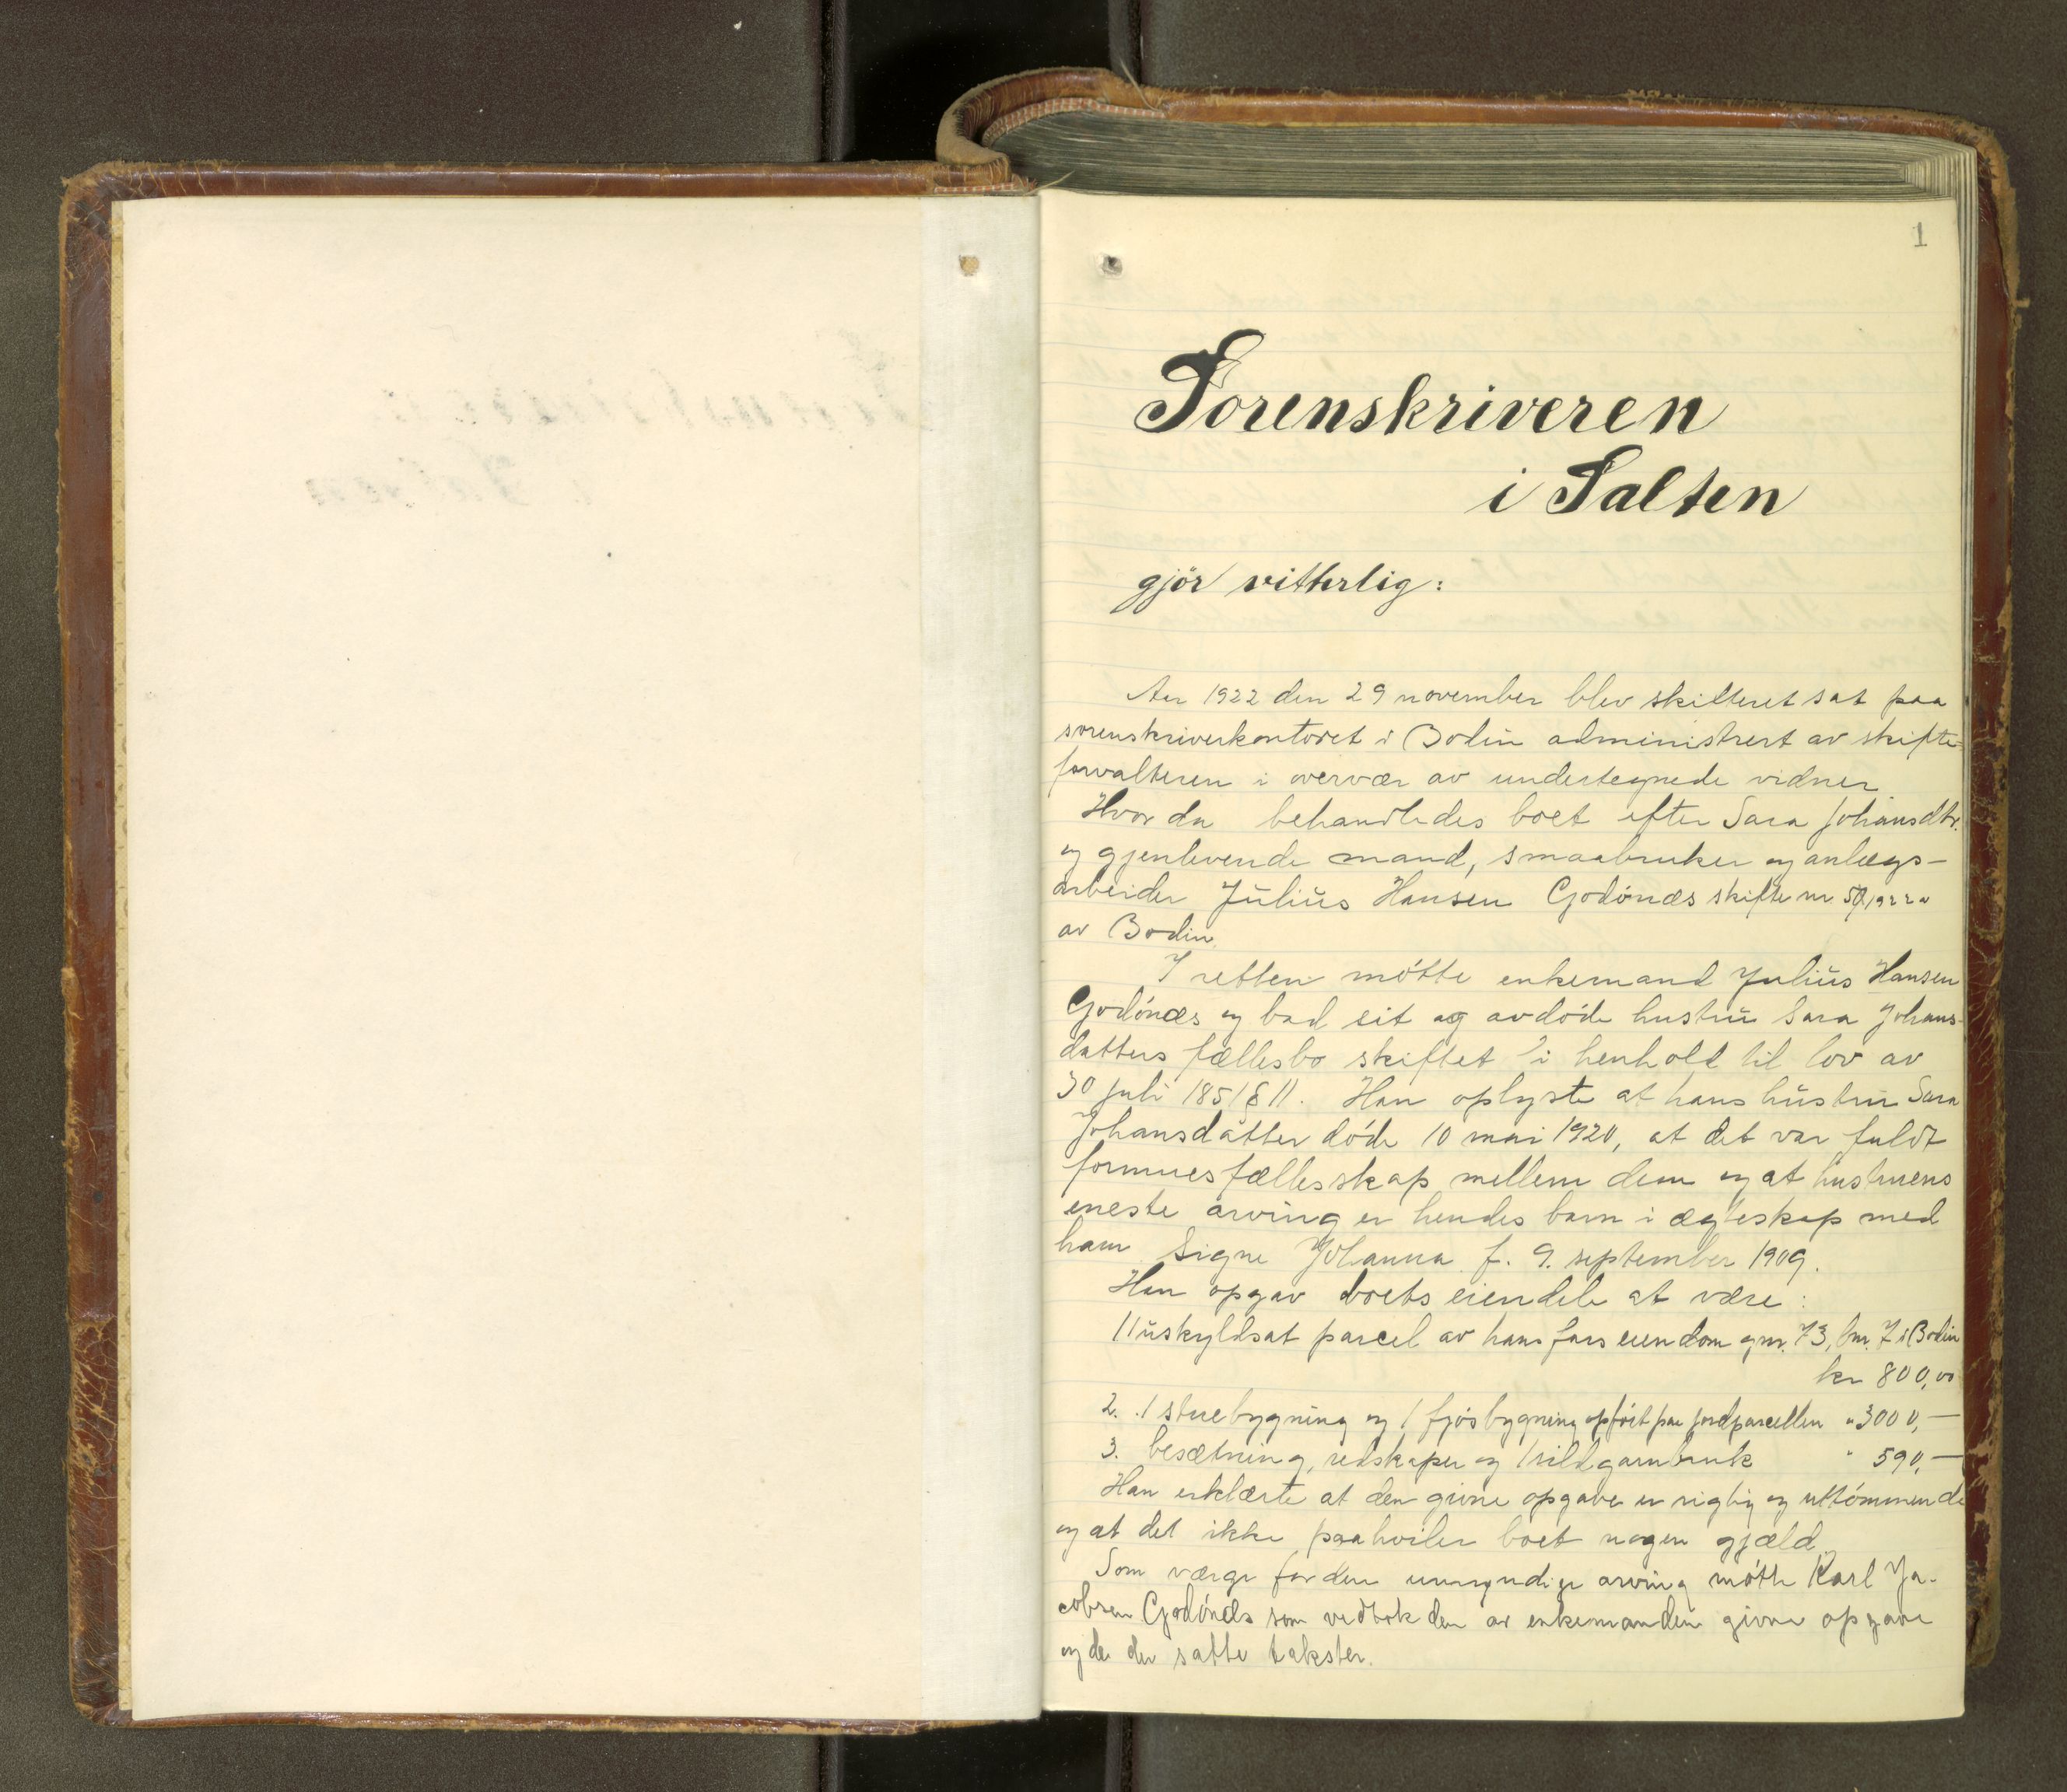 1
Sorenskriveren
i Salten
gjör vitterlig:
Aar 1922 den 29 november blev skifteret sat paa
sorenskriverkontoret i Bodin administrert av skifte-
forvalteren i overvær av undertegnede vidner
Hvor da behandledes boet efter Sara Johansdtr.
og gjenlevende mand, smaabruker og anlægs-
arbeider Julius Hansen Godönæs skifte nr.
av Bodin.
I retten mötte enkemand Julius Hansen
Godönæs og bad sit og avdöde hustru Sara Johans-
datters fællesbo skiftet i henhold til lov av
30 juli 1851 § 11. Han oplyste at hans hustru Sara
Johansdatter döde 10 mai 1920, at det var fuldt
formuesfællesskap mellem dem og at hustruens
eneste arving er hendes barn i ægteskap med
ham Signe Johanna f. 9. september 1909.
Han opgav boets eiendele at være:
1 Uskyldsat parcel av hans fars eiendom gnr. 73, bnr. 7 i Bodin
kr 800,00
2. 1 stuebygning og 1 fjösbygning opfört paa jordparcellen " 3000,—
3. besætning, redskaper og 1 sildgarnbruk " 590,—
Han erklærte at den givne opgave er rigtig og uttömmende
og at det ikke paahviler boet nogen gjæld.
Som værge for den umyndige arving mötte Karl Ja-
cobsen Godönæs som vedtok den av enkemanden givne opgave
og de der satte takster.